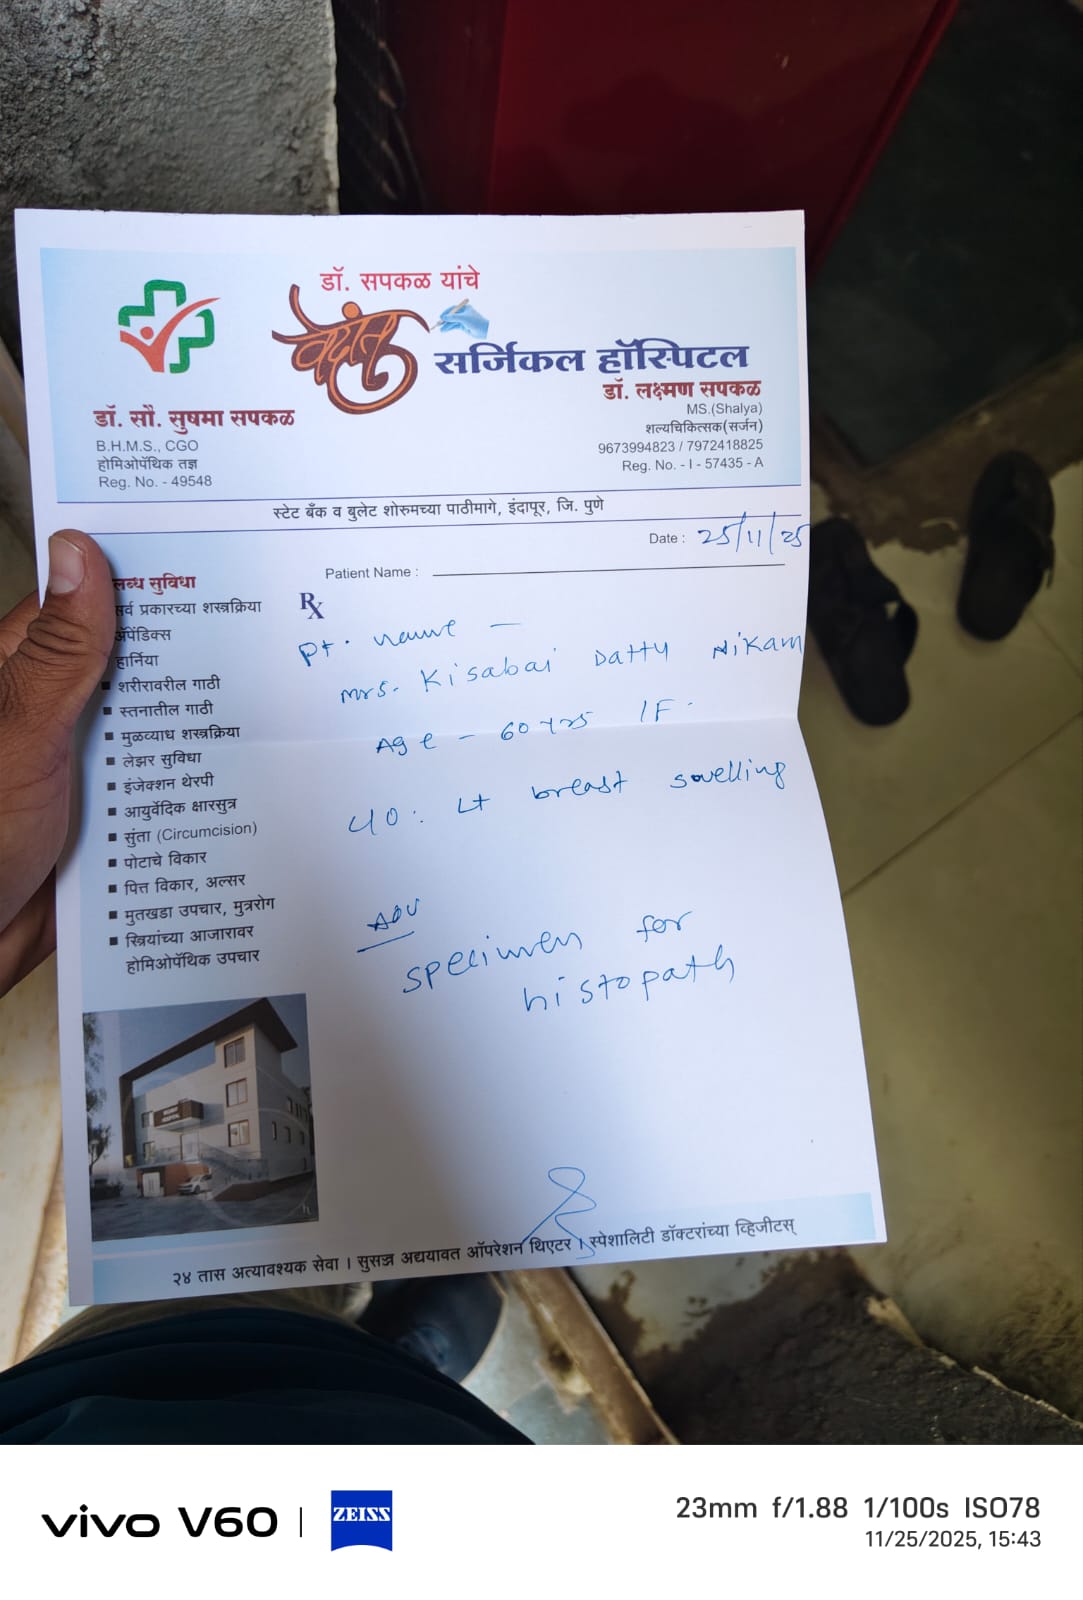 डॉ. सपकळ यांचे
वेदांत
सर्जिकल हॉस्पिटल
डॉ. सौ. सुषमा सपकळ
B.H.M.S., CGO
होमिओपॅथिक तज्ञ
Reg. No. - 49548
डॉ. लक्ष्मण सपकळ
MS.(Shalya)
शल्यचिकित्सक(सर्जन)
9673994823 / 7972418825
Reg. No. - I - 57435 - A
स्टेट बँक व बुलेट शोरुमच्या पाठीमागे, इंदापूर, जि. पुणे
Date : 25/11/25
Patient Name :
लब्ध सुविधा
सर्व प्रकारच्या शस्त्रक्रिया
ॲपेंडिक्स
हार्निया
शरीरावरील गाठी
स्तनातील गाठी
मुळव्याध शस्त्रक्रिया
लेझर सुविधा
इंजेक्शन थेरपी
आयुर्वेदिक क्षारसुत्र
सुंता (Circumcision)
पोटाचे विकार
पित्त विकार, अल्सर
मुतखडा उपचार, मुत्ररोग
स्त्रियांच्या आजारावर
होमिओपॅथिक उपचार
Rx
Pt. name —
Mrs. Kisabai Dattu Nikam
Age - 60 yrs /F.
Lt breast swelling
Adv
specimen for
histopath
२४ तास अत्यावश्यक सेवा । सुसज्ज अद्ययावत ऑपरेशन थिएटर । स्पेशालिटी डॉक्टरांच्या व्हिजीटस्
vivo V60 | ZEISS
23mm f/1.88 1/100s ISO78
11/25/2025, 15:43